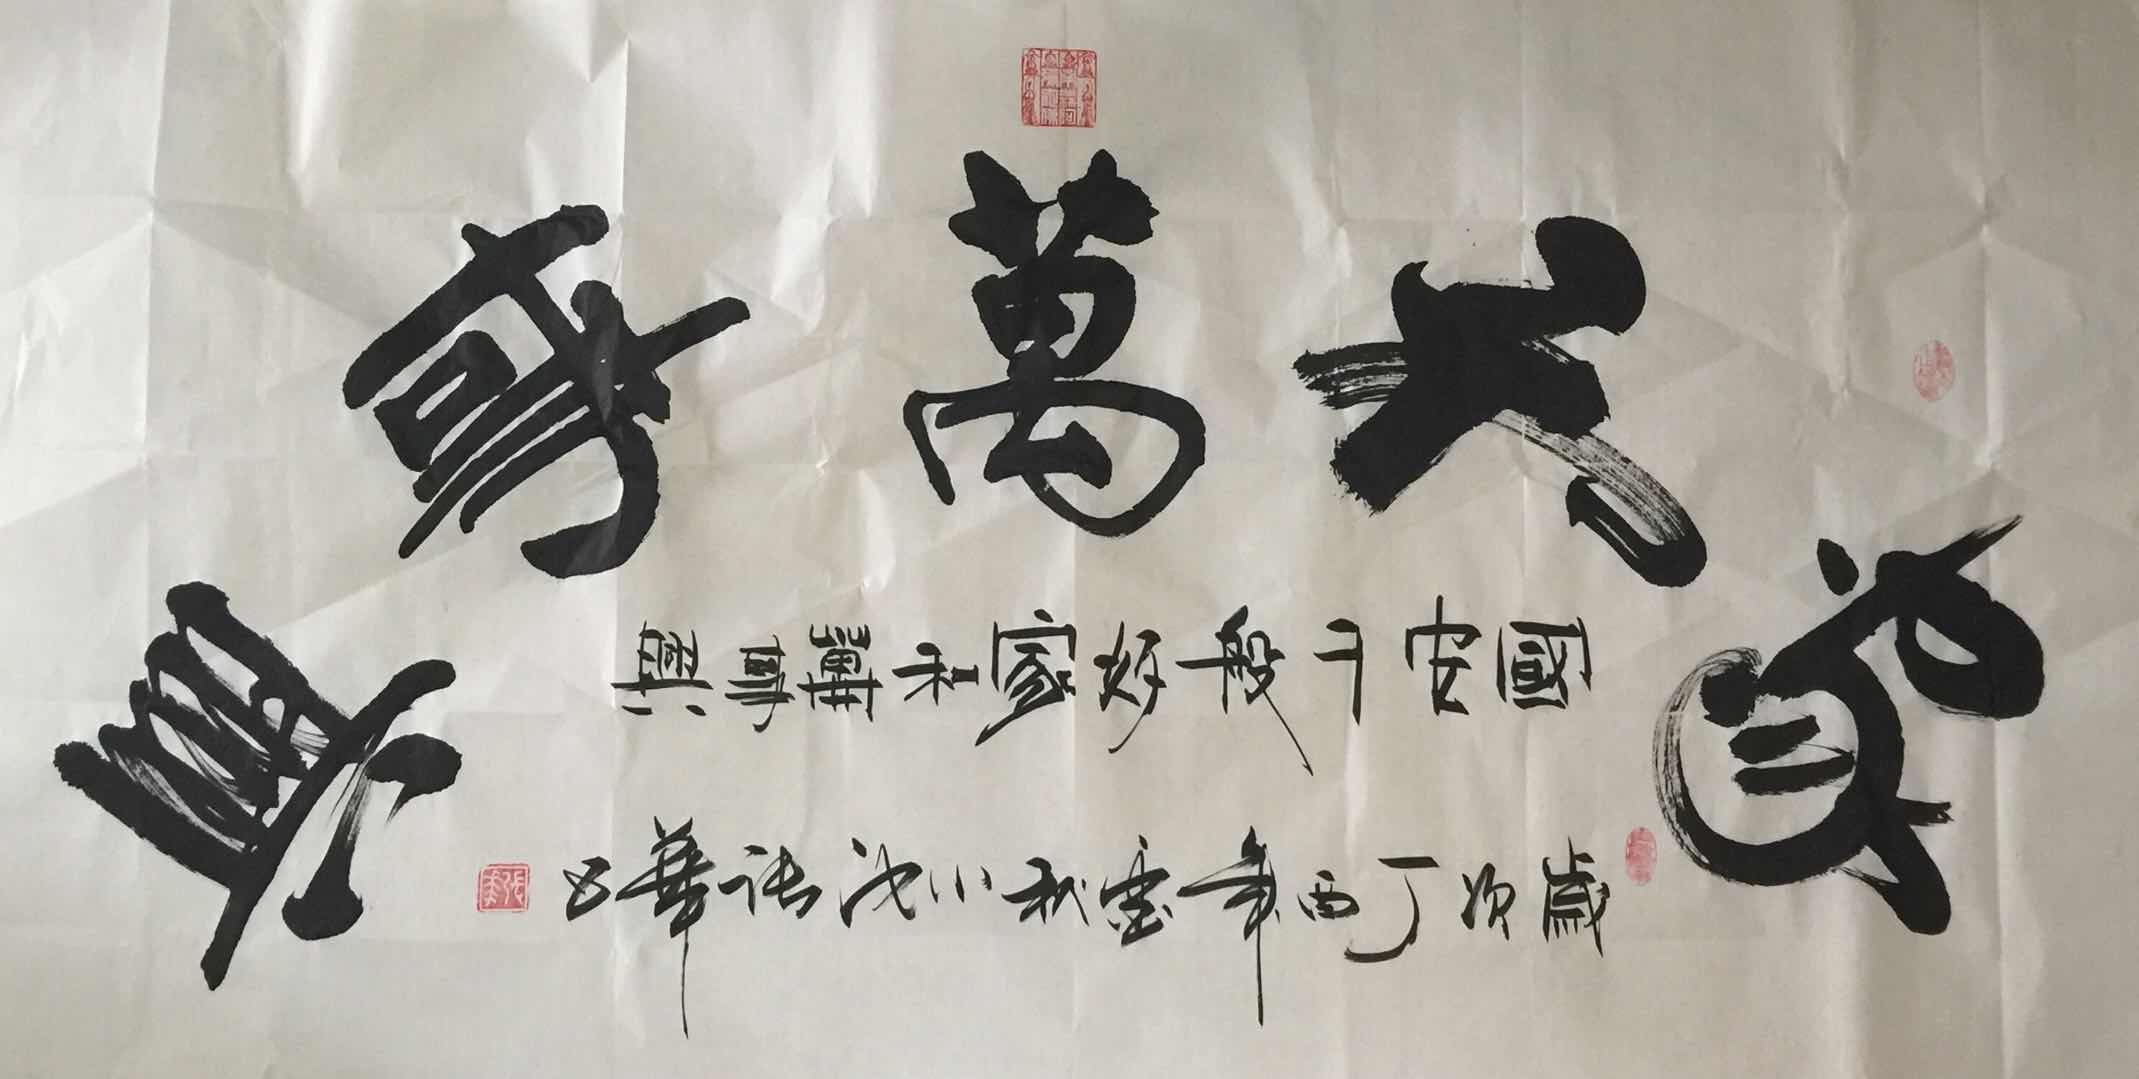 家和萬事興
國安千般好家和萬事興
歲次丁酉年孟秋小沈張華书